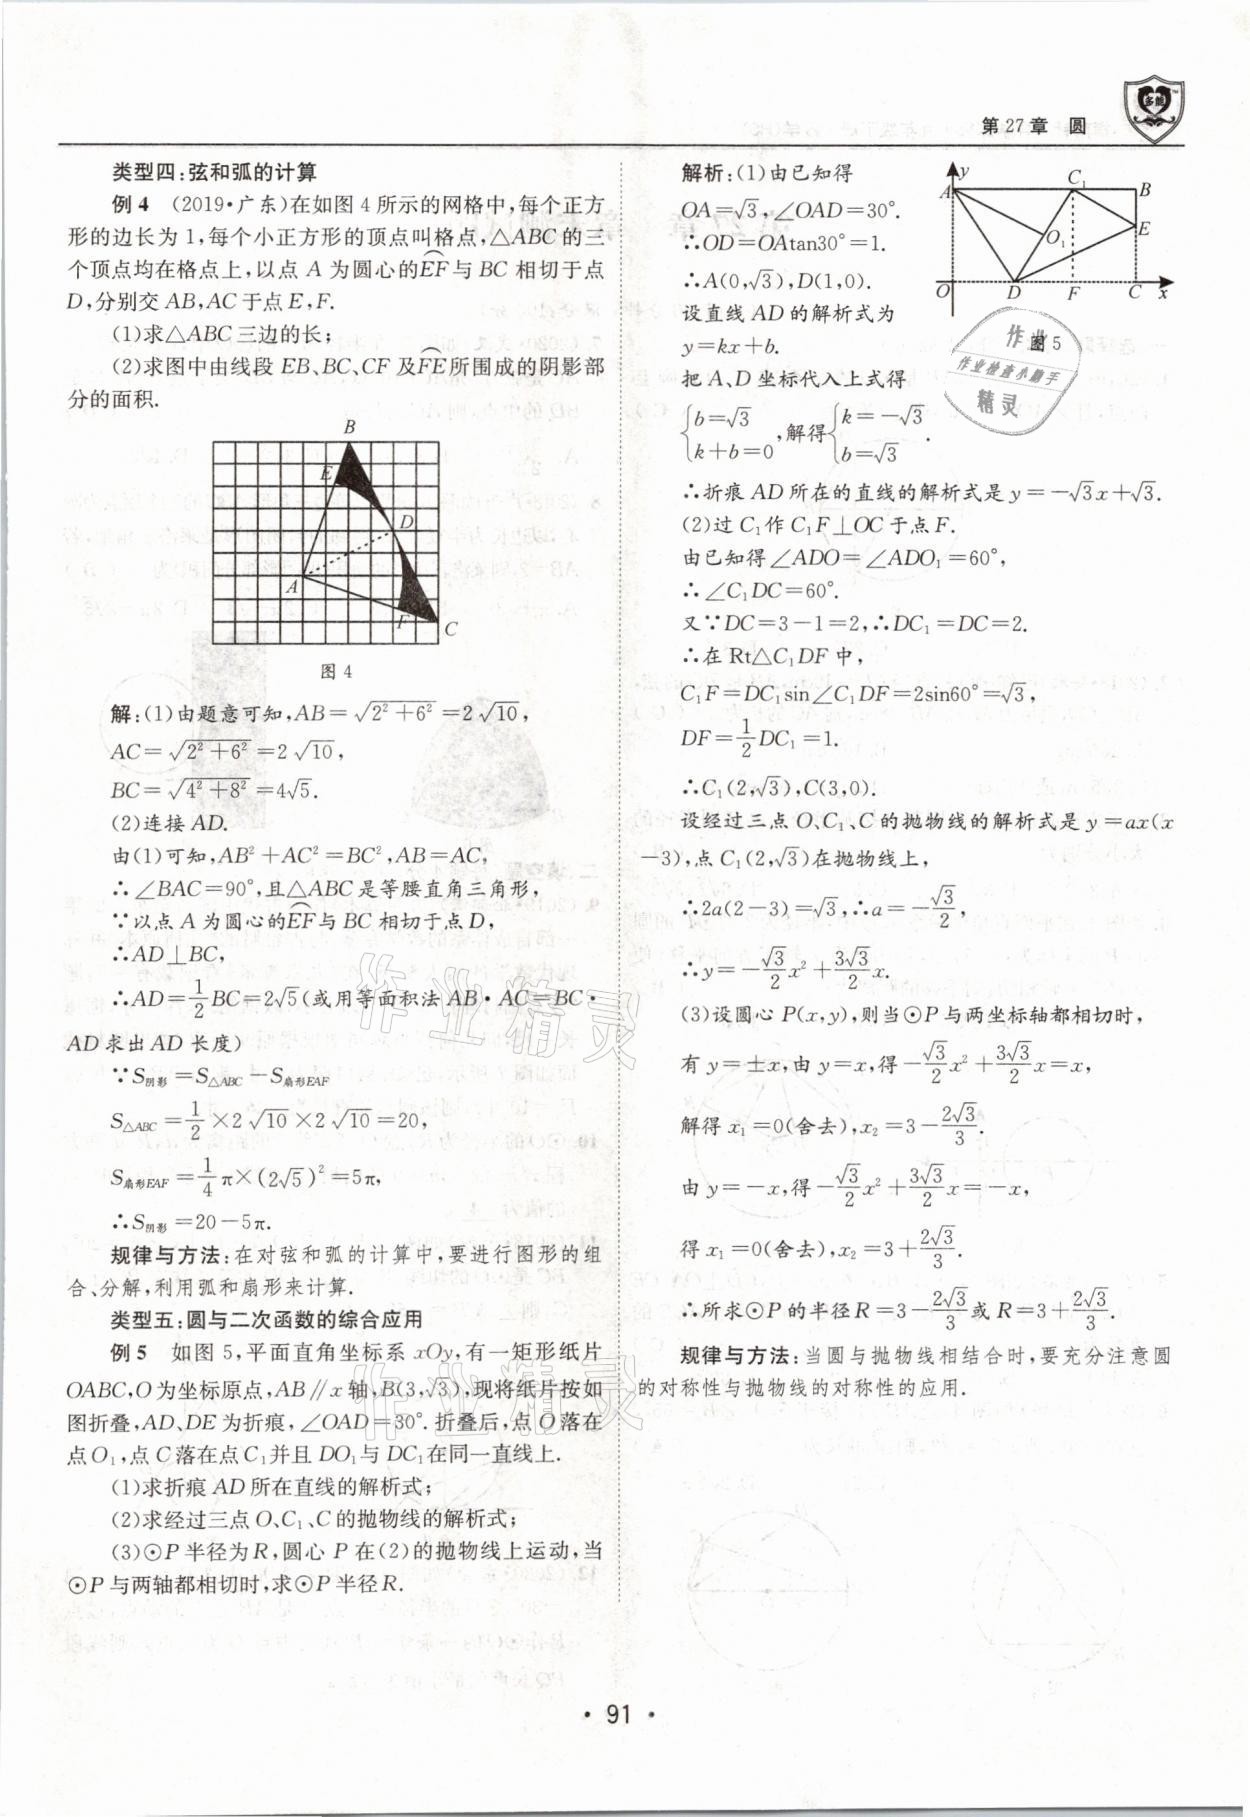 第27章 圆
类型四:弦和弧的计算
例4 (2019·广东)在如图4所示的网格中,每个正方
形的边长为1,每个小正方形的顶点叫格点,△ABC的三
个顶点均在格点上,以点A为圆心的⌒EF与BC相切于点
D,分别交AB,AC于点E,F.
(1)求△ABC三边的长;
(2)求图中由线段EB、BC、CF及⌒FE所围成的阴影部
分的面积.
B
E
D
A
F
C
图4
解:(1)由题意可知,AB=√(2²+6²)=2√10,
AC=√(2²+6²)=2√10,
BC=√(4²+8²)=4√5.
(2)连接AD.
由(1)可知,AB²+AC²=BC²,AB=AC,
∴∠BAC=90°,且△ABC是等腰直角三角形,
∵以点A为圆心的⌒EF与BC相切于点D,
∴AD⊥BC,
∴AD=1/2BC=2√5(或用等面积法AB·AC=BC·
AD求出AD长度)
∵S阴影=S△ABC-S扇形EAF
S△ABC=1/2×2√10×2√10=20,
S扇形EAF=1/4π×(2√5)²=5π,
∴S阴影=20-5π.
规律与方法:在对弦和弧的计算中,要进行图形的组
合、分解,利用弧和扇形来计算.
类型五:圆与二次函数的综合应用
例5 如图5,平面直角坐标系xOy,有一矩形纸片
OABC,O为坐标原点,AB∥x轴,B(3,√3),现将纸片按如
图折叠,AD、DE为折痕,∠OAD=30°.折叠后,点O落在
点O₁,点C落在点C₁并且DO₁与DC₁在同一直线上.
(1)求折痕AD所在直线的解析式;
(2)求经过三点O、C₁、C的抛物线的解析式;
(3)⊙P半径为R,圆心P在(2)的抛物线上运动,当
⊙P与两轴都相切时,求⊙P半径R.
解析:(1)由已知得
OA=√3,∠OAD=30°.
∴OD=OAtan30°=1.
∴A(0,√3),D(1,0).
设直线AD的解析式为
y=kx+b.
把A、D坐标代入上式得
{b=√3 k+b=0,解得{k=-√3 b=√3.
y
A
C₁
B
O₁
E
O
D
F
C
x
图5
作业
作业检查小助手
精灵
∴折痕AD所在的直线的解析式是y=-√3x+√3.
(2)过C₁作C₁F⊥OC于点F.
由已知得∠ADO=∠ADO₁=60°,
∴∠C₁DC=60°.
又∵DC=3-1=2,∴DC₁=DC=2.
∴在Rt△C₁DF中,
C₁F=DC₁sin∠C₁DF=2sin60°=√3,
DF=1/2DC₁=1.
∴C₁(2,√3),C(3,0).
设经过三点O、C₁、C的抛物线的解析式是y=ax(x
-3),点C₁(2,√3)在抛物线上,
∴2a(2-3)=√3,∴a=-√3/2,
∴y=-√3/2x²+3√3/2x.
(3)设圆心P(x,y),则当⊙P与两坐标轴都相切时,
有y=±x,由y=x,得-√3/2x²+3√3/2x=x,
解得x₁=0(舍去),x₂=3-2√3/3.
由y=-x,得-√3/2x²+3√3/2x=-x,
得x₁=0(舍去),x₂=3+2√3/3.
∴所求⊙P的半径R=3-2√3/3或R=3+2√3/3.
规律与方法:当圆与抛物线相结合时,要充分注意圆
的对称性与抛物线的对称性的应用.
作业精灵
作业精灵
· 91 ·